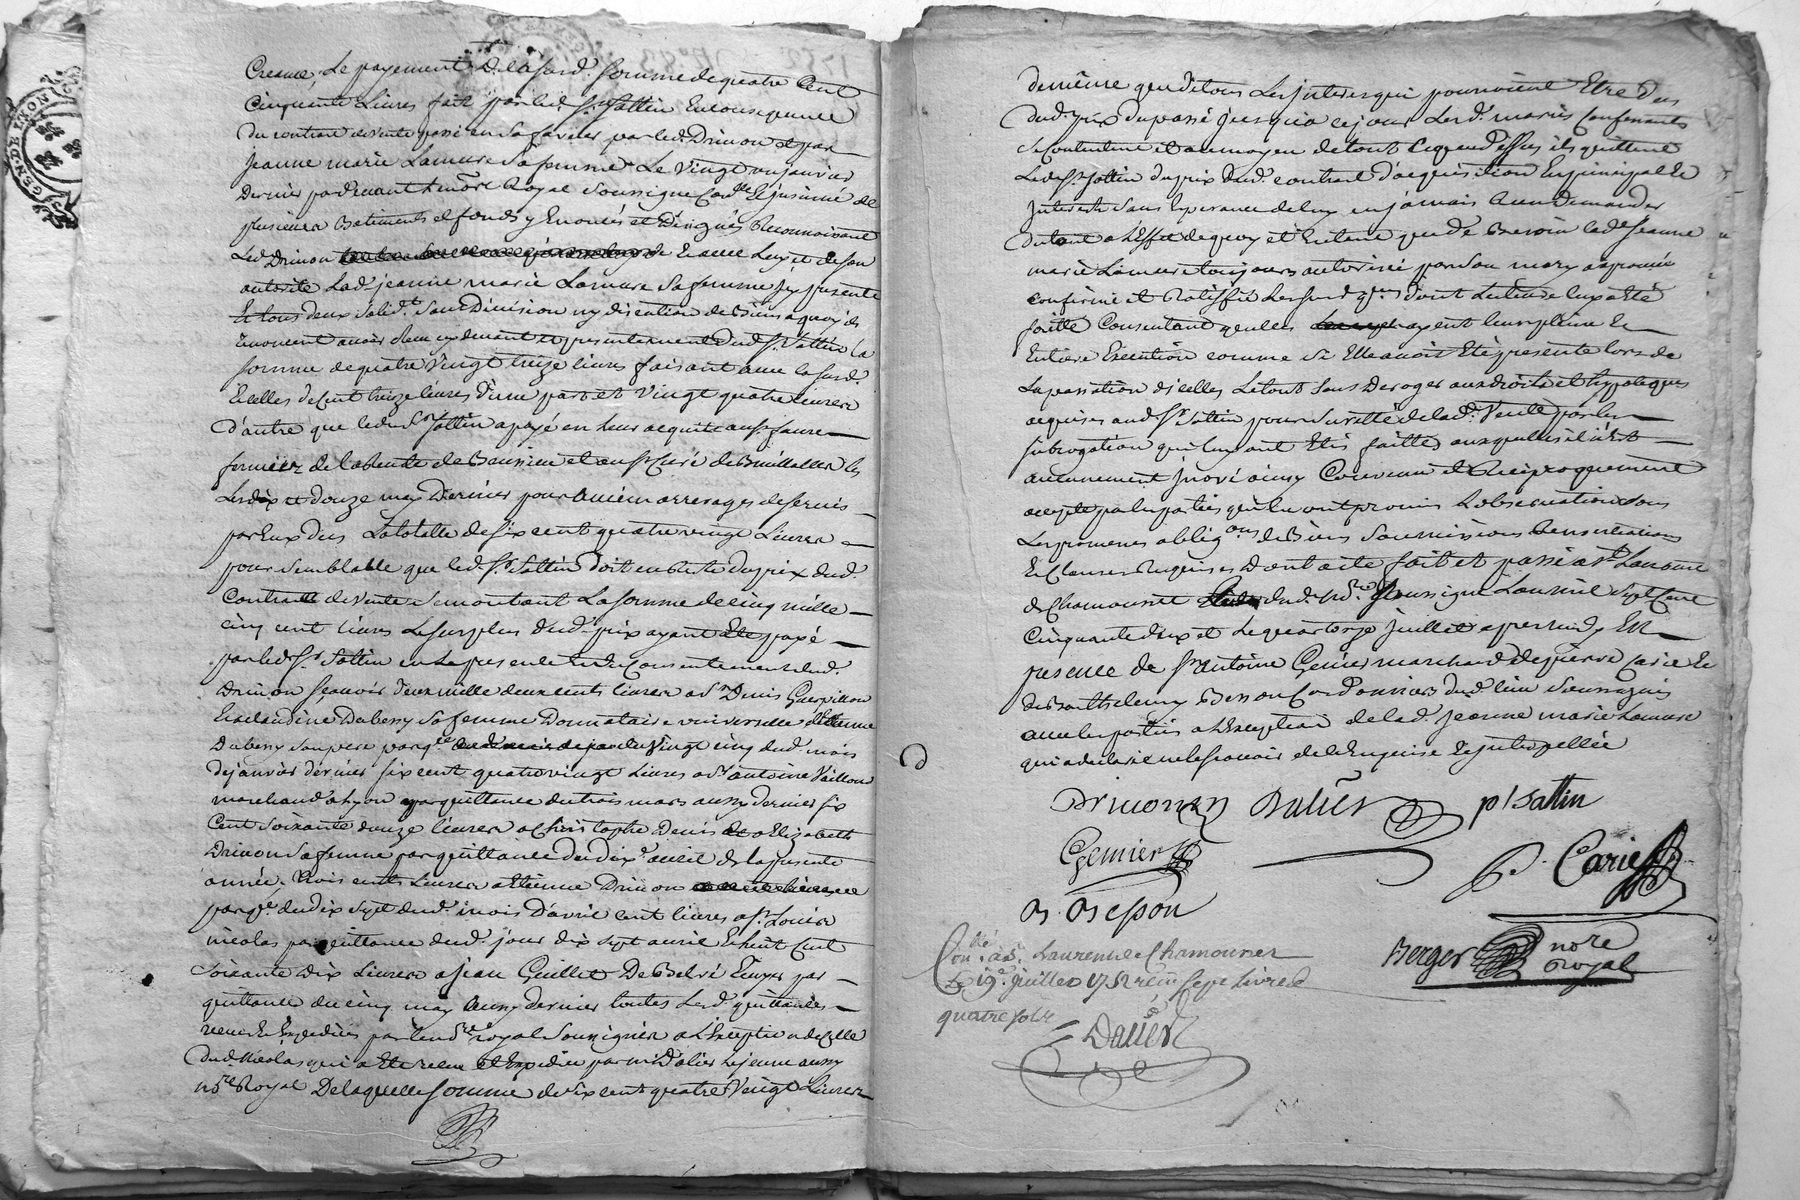 GEN. DE LYON
Creance Le payement De lasurd. somme de quatre Cent
Cinquante Livres fait par led. Sr. Sattin En consequence
Du contrat de vente passé en sa faveur par led. Drivon et par
Jeanne marie Lamure sa femme Le Vingt un janvier
Dernier pardevant le nore Royal Soussigné de
plusieurs Batiments et fonds y Enoncés et Désignés Reconnoissant
Led. Drivon avec Luy et de son
autorité Lad. jeanne marie Lamure sa femme jcy presente
Et tous deux solid.t Sans Division ny discution de Biens a quoy ils
renoncent avoir Receu cy devant et presentement dud. Sr. Sattin La
somme de quatre Vingt treize livres faisant avec lasurd.
Et celles de Cent treize livres D'une part et Vingt quatre livres
D'autre que led. Sr. Sattin a payé en leur acquit au Sr. faure
fermier de la Rente de et au Sr. Curé de les
Les dix et douze may Derniers pour arrerages de servis
par Eux dus La totalle de six cent quatre vingt Livres
pour semblable que led. Sr. Sattin Doit en Reste du prix dud.
Contrat de vente se montant La somme de cinq mille
cinq cent livres Le surplus dud. prix ayant Eté payé
par led. Sr. Sattin en la presence et du Consentement dud.
Drivon sçavoir deux mille deux cents livres a Sr. Denis Guerpillon
Et a Claudine Dubessy sa femme Donnataire universelle d'Etienne
Dubessy son pere par q.ce du Vingt cinq dud. mois
de janvier dernier six cent quatre vingt Livres a Sr. antoine Vaillon
marchand a Lyon par quittance du trois mars aussy dernier six
Cent soixante douze livres a Christophe Denis et a Elizabeth
Drivon sa femme par quittance du dix avril de la presente
année. trois cents Livres a Etienne Drivon
par q.ce du dix sept dud. mois D'avril cent livres a Sr. Louis
nicolas par quittance dud. jour dix sept avril Et huit Cent
Soixante Dix Livres a jean Guillet De par
quittance du cinq may aussy dernier toutes Lesd. quittances
receues Et Expediées par led. nre royal Soussigné a L'Exception de celle
Dud. Nicolas qui a Eté receue et Expediée par me Dalier Le jeune aussy
nre Royal De laquelle somme de six cent quatre Vingt Livres
de même que de tous Les jnterets qui pourroient Etre Dus
dud. prix du passé jusqu'a ce jour Lesd. mariés Consentants
se Contentent et au moyen de tout ce que dessus ils quittent
Led. Sr. Sattin du prix dud. contrat d'acquisition En principal Et
jnterets sans Esperance de luy en jamais Rien Demander
Du tout a L'Effet de quoy et Entant que de Besoin lad. Jeanne
marie Lamure toujours autorisée par son mary a aprouvé
confirmé et Ratiffié Les surd. q.ces dont Lecture luy a Eté
faitte Consentant qu'elles ayent leur pleine Et
Entiere Execution comme si Elle avoit Eté presente lors de
La passation d'icelles Le tout sans Deroger aux droits et hypoteques
acquises aud. Sr. Sattin pour sureté de lad. Vente par les
subrogation qui luy ont Eté faittes auxquelles il n'Est
aucunement jnové ainsy Convenu et Reciproquement
accepté par les parties qui En ont promis L'observation sous
Les promesses oblig.ons de Biens soumissions Renontiations
Et Clauses Requises Dont acte fait et passé a St. Laurent
de Chamousset dud. N.re Soussigné L'an mil Sept Cent
Cinquante deux et Le quatorze juillet apres midy En
presence de Sr. antoine Genier marchand de pierre Carie Et
de Barthelemy Besson Cordonnier dud. lieu soussignés
avec les parties a L'Exception de lad. Jeanne marie Lamure
qui a declaré ne le sçavoir de ce Enquise Et jnterpellée
Drivon Dalier p / Sattin
Genier
P. Carie
B. Besson
Berger nore Royal
Con.llé a St. Laurent de Chamousset
Le 19e. juillet 1752 sept livres
quatre sols
Dalier